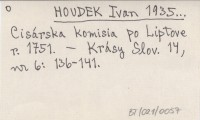 HOUDEK Ivan 1935...
Cisárska komisia po Liptove
r. 1751. — Krásy Slov. 14,
nr 6: 136-141.